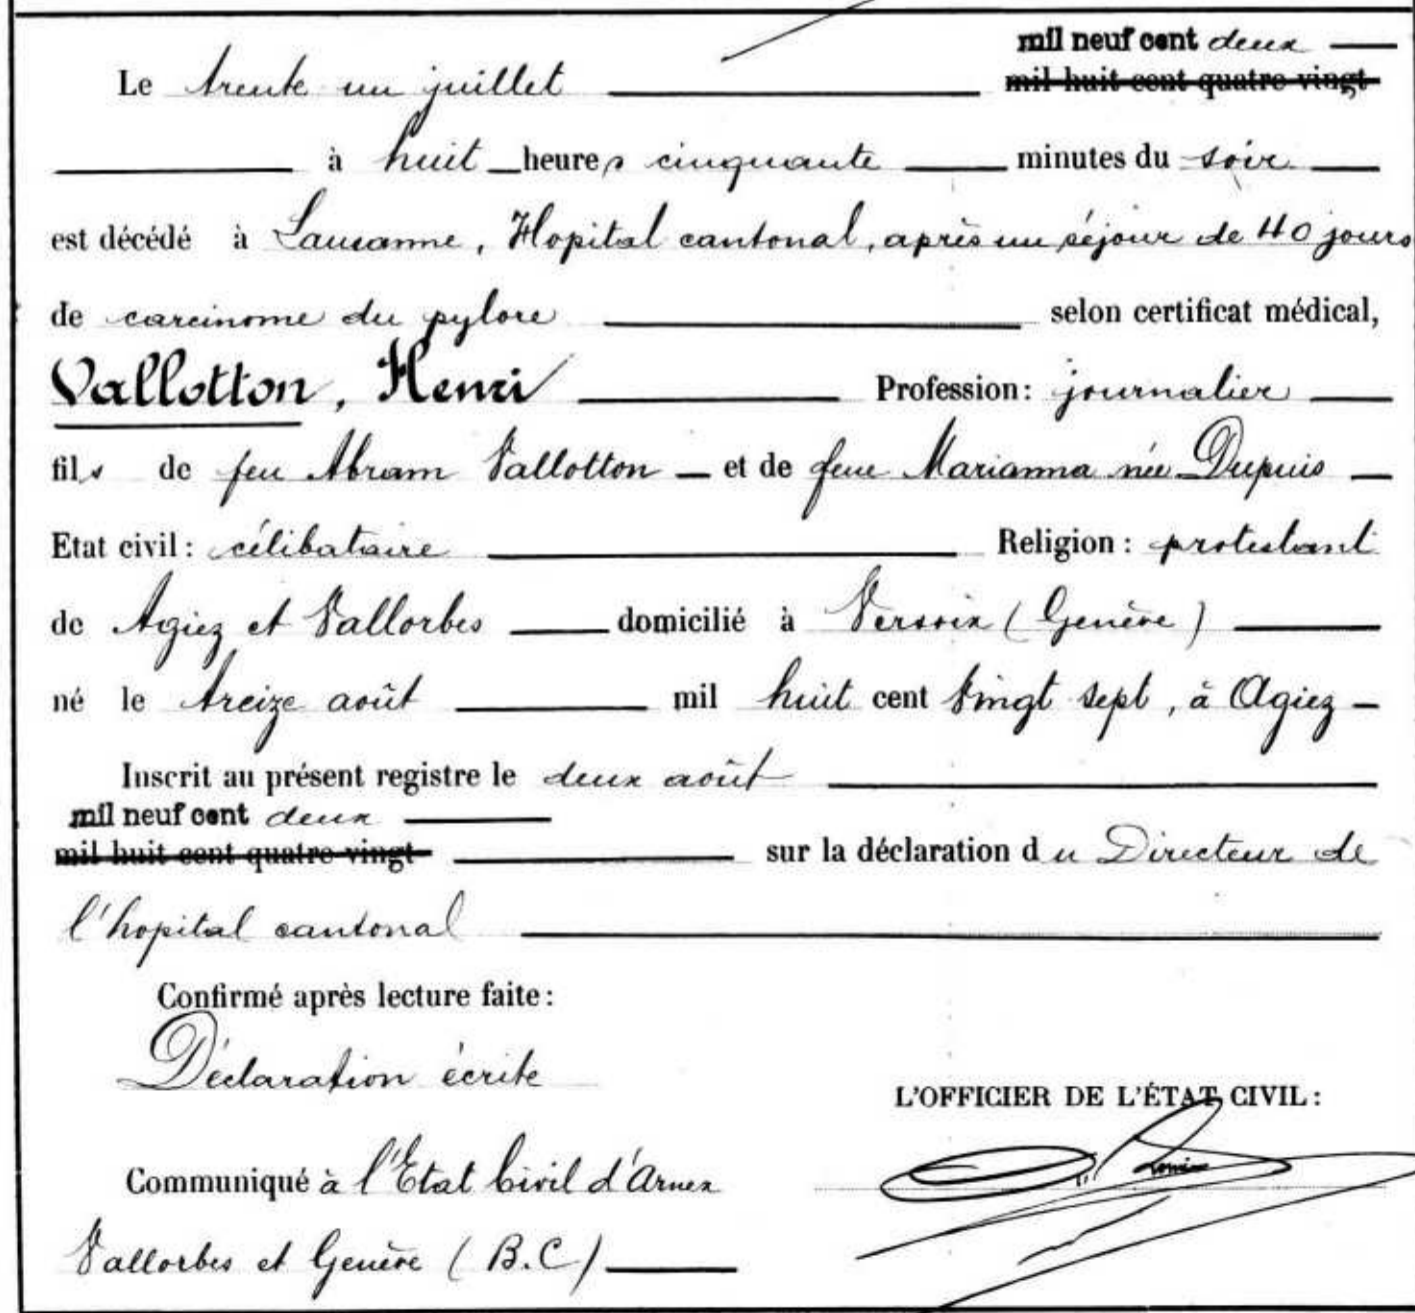 mil neuf cent deux
Le trente un juillet mil huit cent quatre vingt
à huit heures cinquante minutes du soir
est décédé à Lausanne, Hopital cantonal, après un séjour de 40 jours
de carcinome du pylore selon certificat médical,
Vallotton, Henri Profession: journalier
fils de feu Abram Vallotton et de feue Marianna née Dupuis
Etat civil: célibataire Religion: protestant
de Agiez et Vallorbes domicilié à Versoix (Genève)
né le treize août mil huit cent vingt sept, à Agiez
Inscrit au présent registre le deux août
mil neuf cent deux
mil huit cent quatre vingt sur la déclaration du Directeur de
l'hopital cantonal
Confirmé après lecture faite:
Déclaration écrite
L'OFFICIER DE L'ÉTAT CIVIL:
Communiqué à l'Etat Civil d'Arnex
Vallorbes et Genève (B.C)